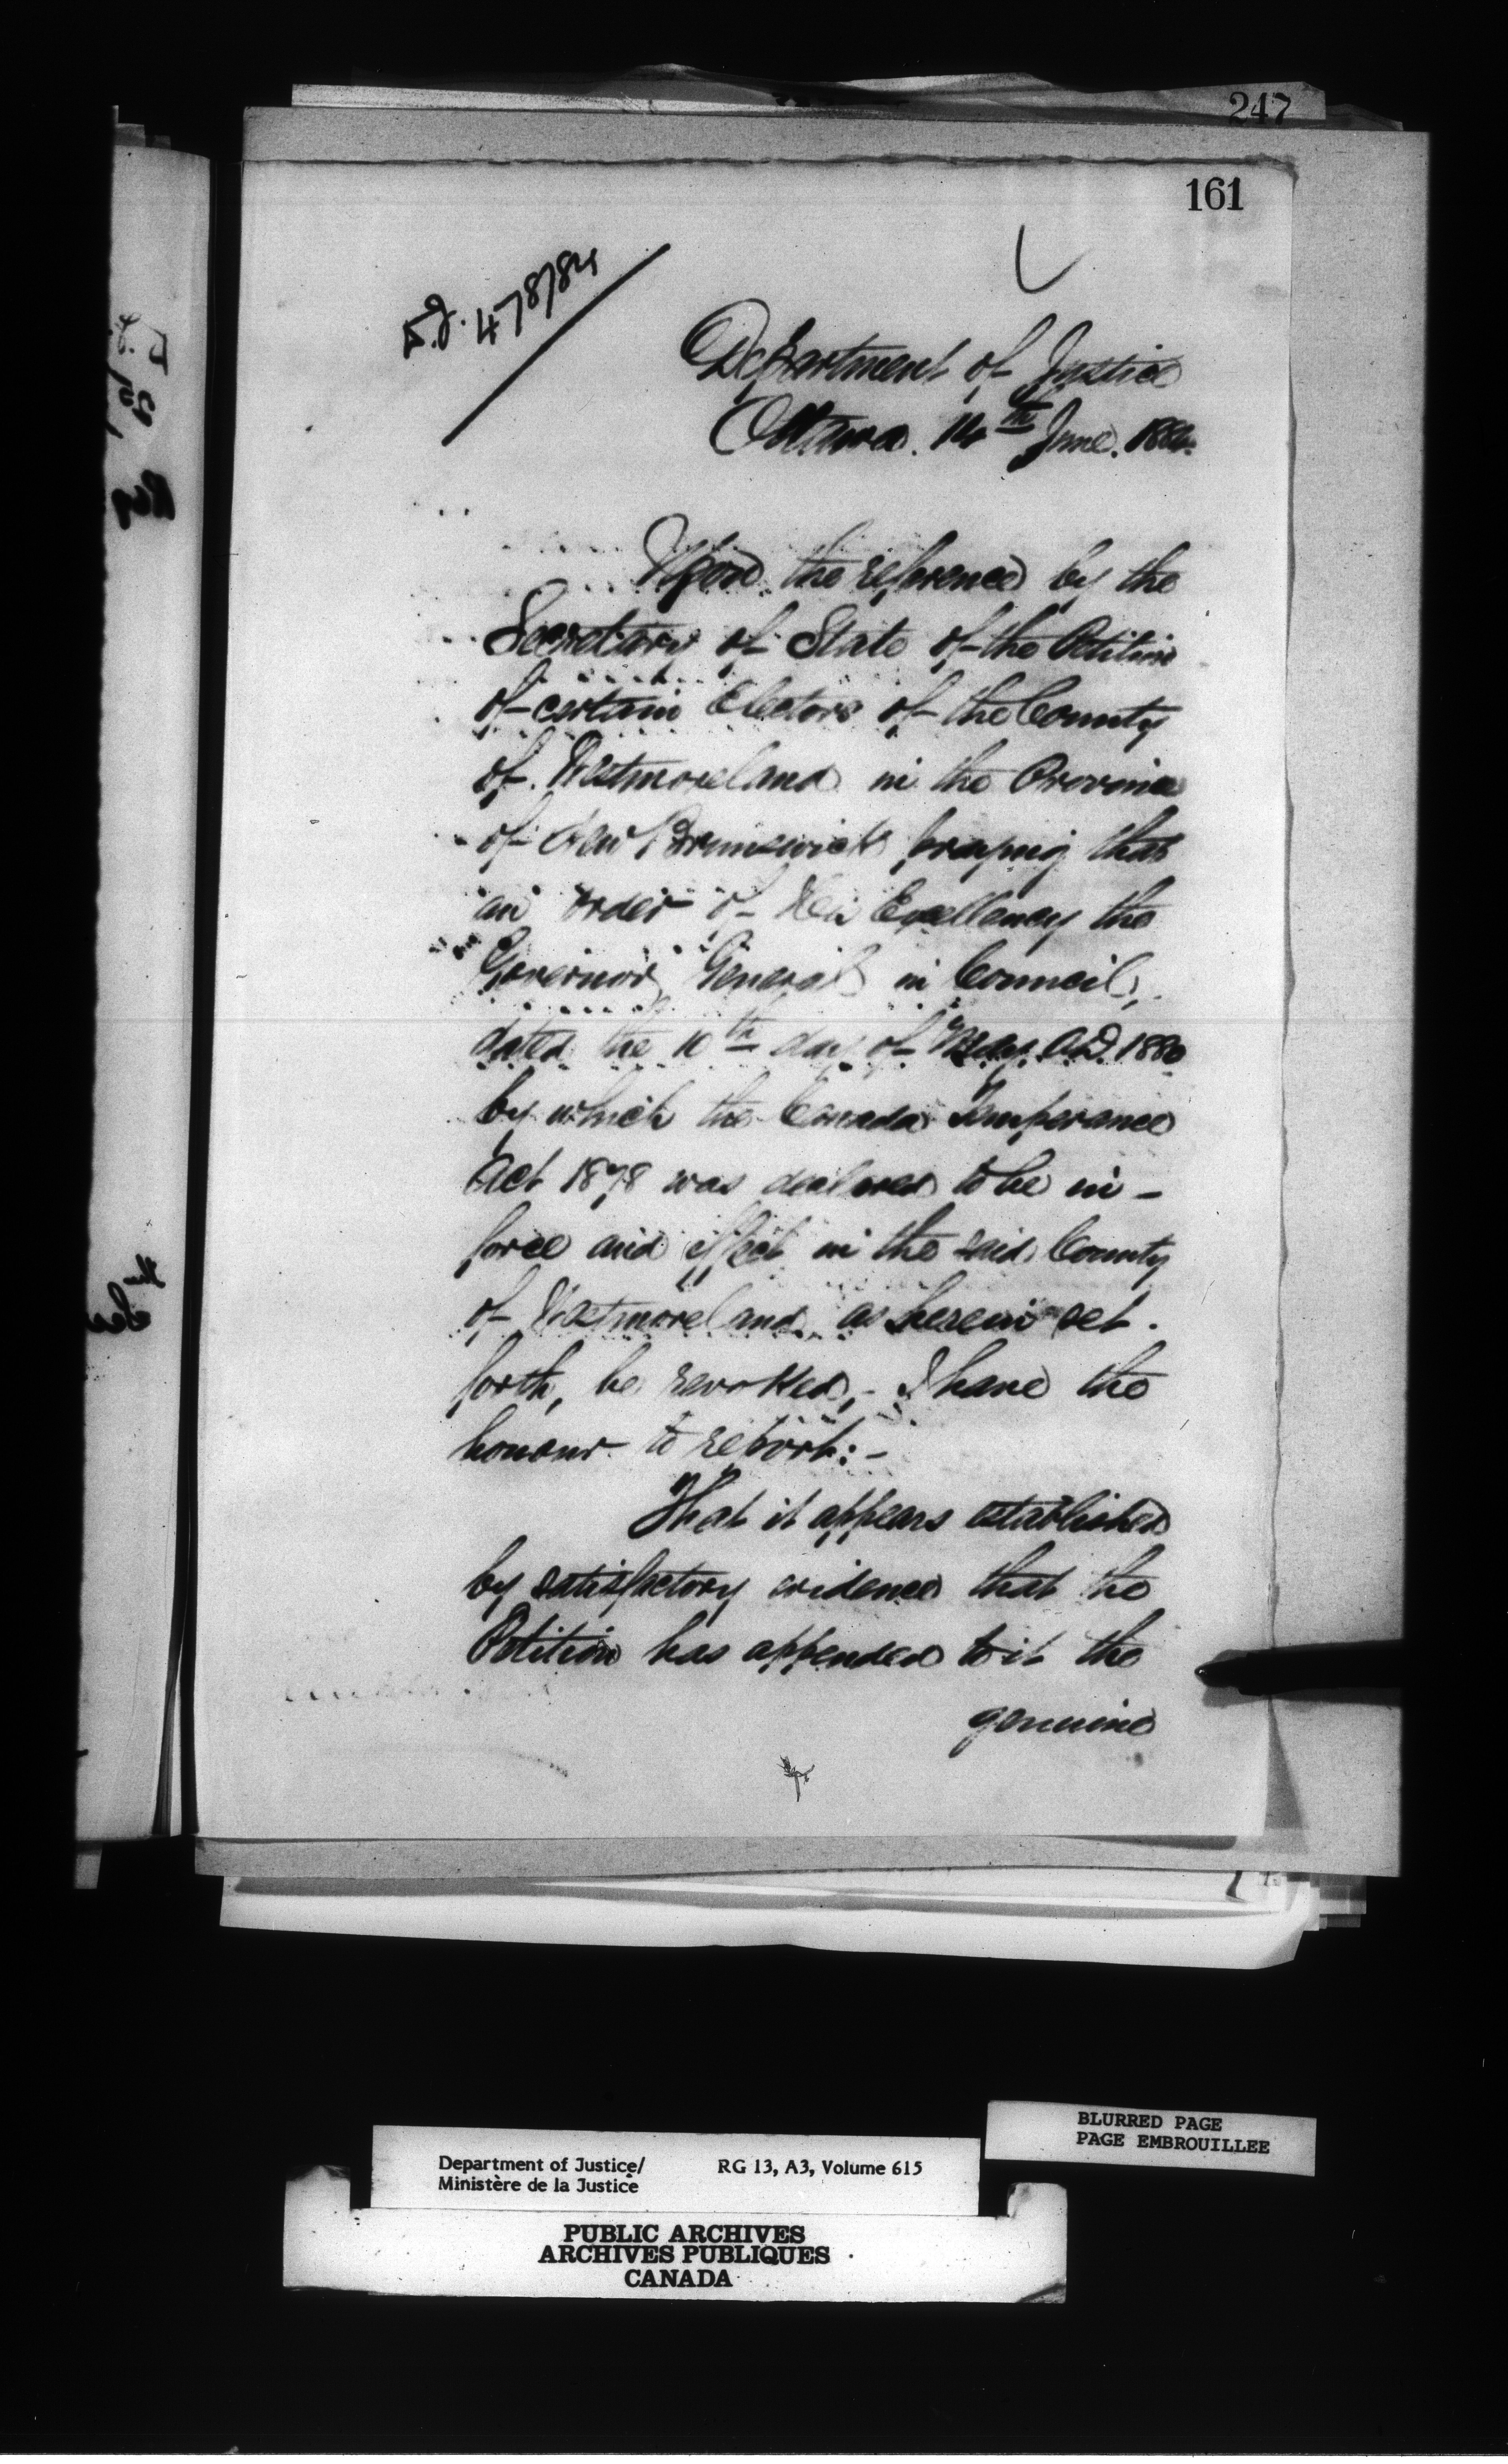 247
161
478/84
Department of Justice
Ottawa. 14th June. 1884.
Upon the reference by the
Secretary of State of the Petition
of certain Electors of the County
of Westmoreland in the Province
of New Brunswick praying that
an order of His Excellency the
Governor General in Council,
dated the 10th day of May A.D. 1880
by which the Canada Temperance
Act 1878 was declared to be in-
force and effect in the said County
of Westmoreland as herein set.
forth, be revoked,- I have the
honour to report:-
That it appears established
by satisfactory evidence that the
Petition has appended to it the
genuine
BLURRED PAGE
PAGE EMBROUILLEE
Department of Justice/ RG 13, A3, Volume 615
Ministère de la Justice
PUBLIC ARCHIVES
ARCHIVES PUBLIQUES
CANADA